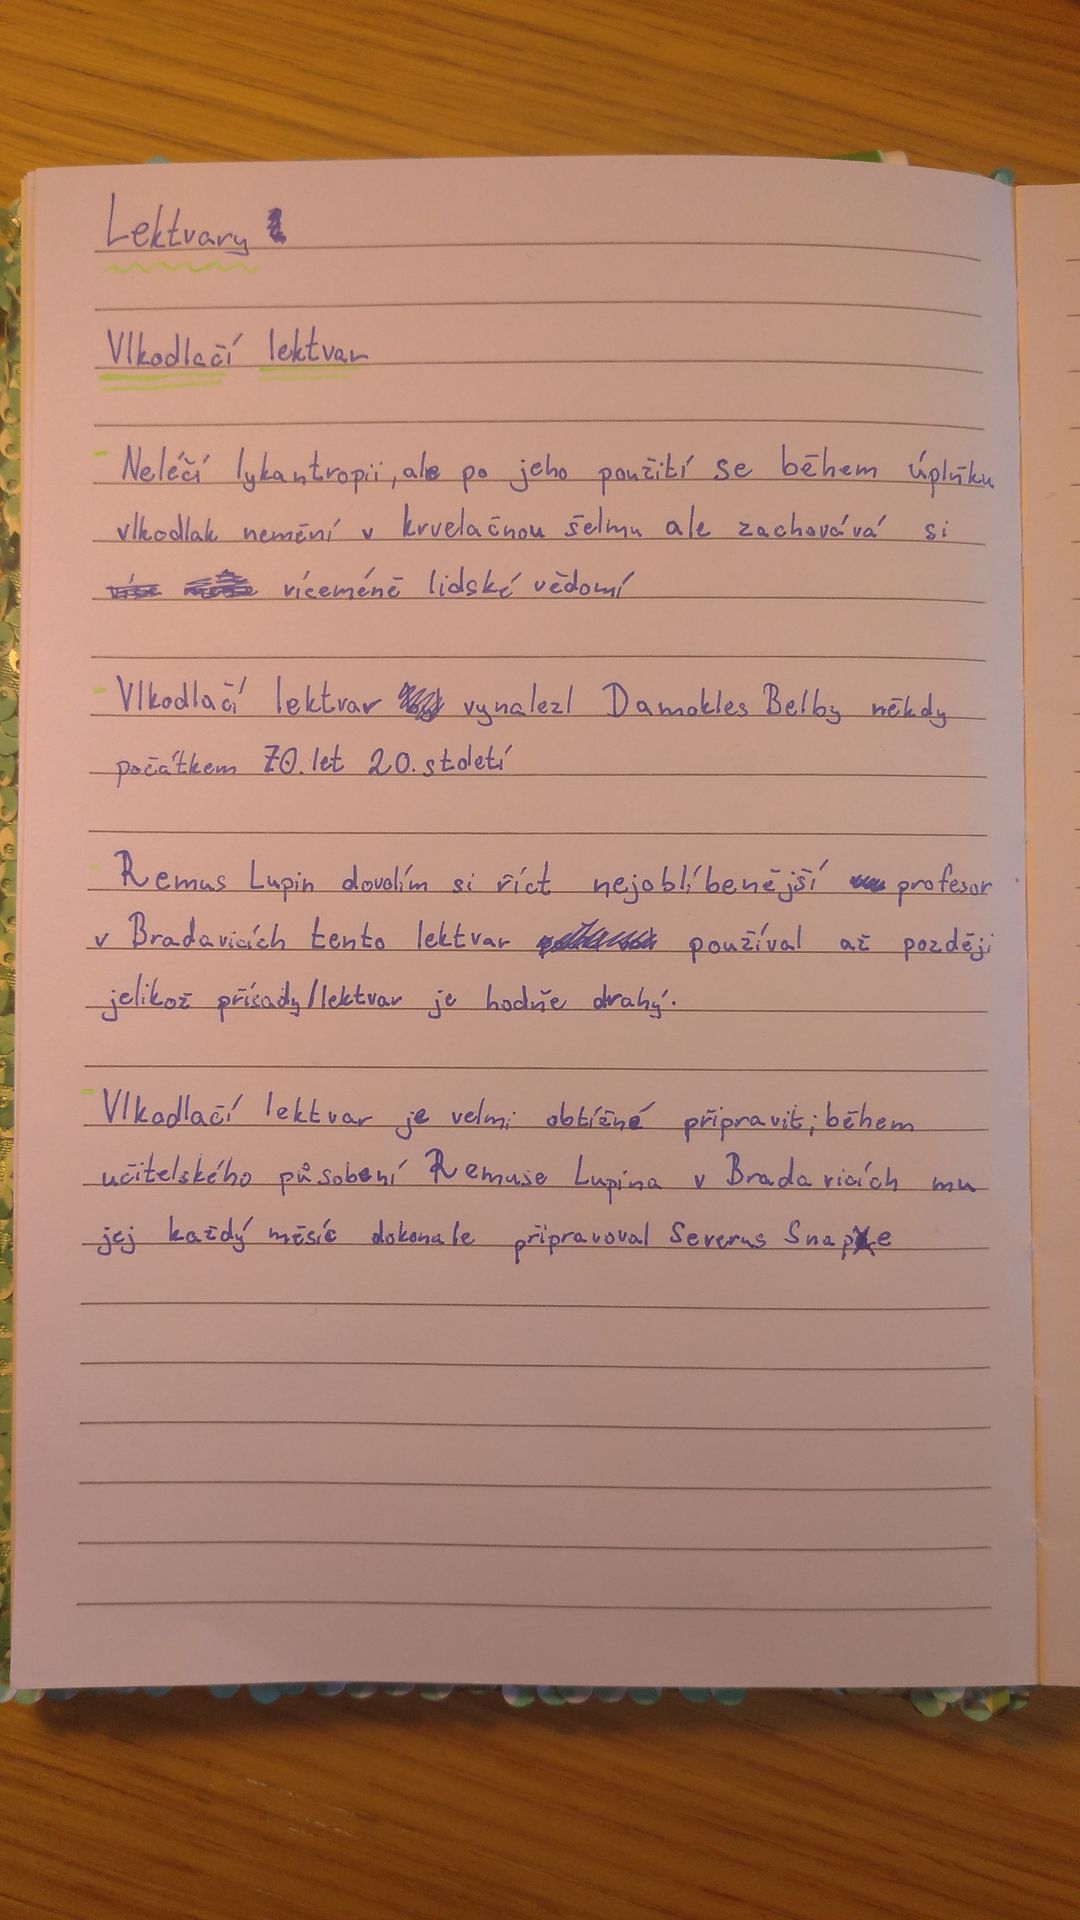 Lektvary
Vlkodlačí lektvar
- Neléčí lykantropii, ale po jeho použití se během úplňku
vlkodlak nemění v krvelačnou šelmu ale zachovává si
víceméně lidské vědomí
- Vlkodlačí lektvar vynalezl Damokles Belby někdy
počátkem 70. let 20. století
- Remus Lupin dovolím si říct nejoblíbenější profesor
v Bradavicích tento lektvar používal až později
jelikož přísady/lektvar je hodně drahý.
- Vlkodlačí lektvar je velmi obtížné připravit; během
učitelského působení Remuse Lupina v Bradavicích mu
jej každý měsíc dokonale připravoval Severus Snape